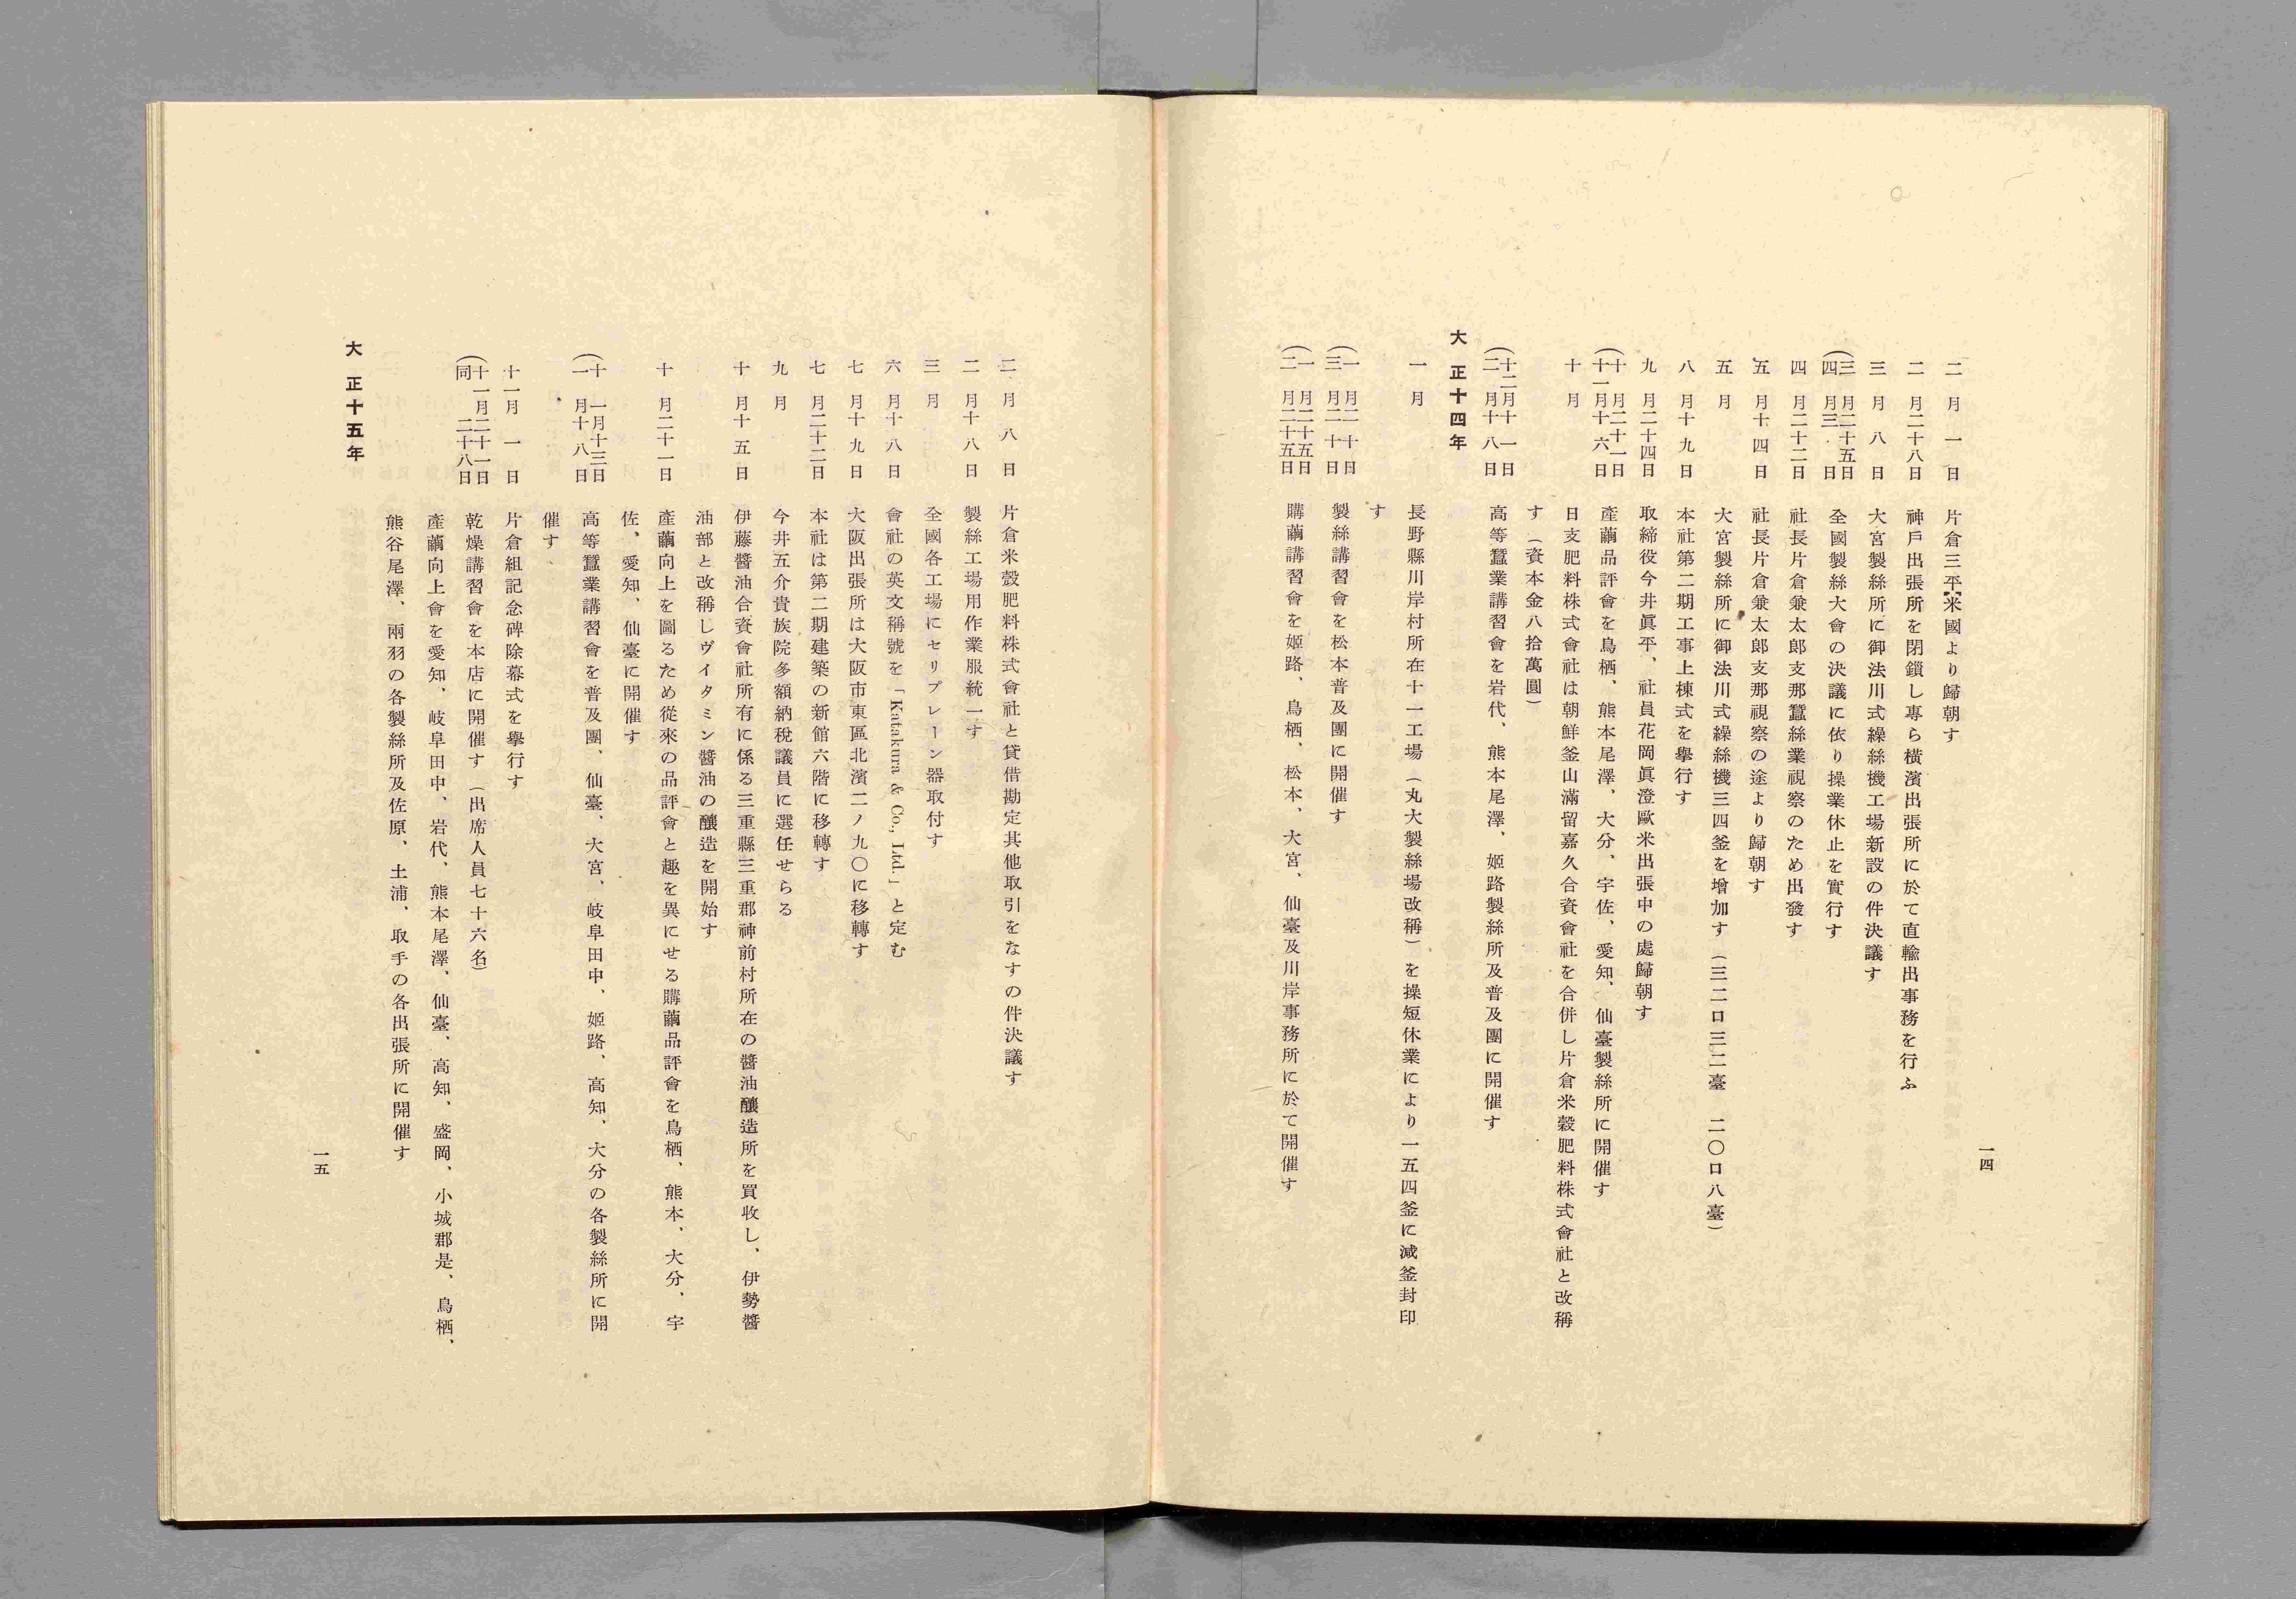 一四
二月一日　片倉三平米國より歸朝す
二月二十八日　神戶出張所を閉鎖し專ら橫濱出張所に於て直輸出事務を行ふ
三月八日　大宮製絲所に御法川式繰絲機工場新設の件決議す
（三月二十五日
四月三日　全國製絲大會の決議に依り操業休止を實行す
四月二十二日　社長片倉兼太郎支那蠶絲業視察のため出發す
五月十四日　社長片倉兼太郎支那視察の途より歸朝す
五月　大宮製絲所に御法川式繰絲機三四釜を增加す（三二口三二臺　二〇口八臺）
八月十九日　本社第二期工事上棟式を擧行す
九月二十四日　取締役今井眞平、社員花岡眞澄歐米出張中の處歸朝す
（十月二十一日
十一月十六日　產繭品評會を鳥栖、熊本尾澤、大分、宇佐、愛知、仙臺製絲所に開催す
十月　日支肥料株式會社は朝鮮釜山滿留嘉久合資會社を合併し片倉米穀肥料株式會社と改稱
す（資本金八拾萬圓）
（十二月十一日
二月十八日　高等蠶業講習會を岩代、熊本尾澤、姬路製絲所及普及團に開催す
大正十四年
一月　長野縣川岸村所在十一工場（丸大製絲場改稱）を操短休業により一五四釜に減釜封印
す
（一月二十日
三月二十日　製絲講習會を松本普及團に開催す
（一月二十五日
二月二十五日　購繭講習會を姬路、鳥栖、松本、大宮、仙臺及川岸事務所に於て開催す
二月八日　片倉米穀肥料株式會社と貸借勘定其他取引をなすの件決議す
二月十八日　製絲工場用作業服統一す
三月　全國各工場にセリプレーン器取付す
六月十八日　會社の英文稱號を「Katakura & Co., Ltd.」と定む
七月十九日　大阪出張所は大阪市東區北濱二ノ九〇に移轉す
七月二十二日　本社は第二期建築の新館六階に移轉す
九月　今井五介貴族院多額納稅議員に選任せらる
十月十五日　伊藤醬油合資會社所有に係る三重縣三重郡神前村所在の醬油釀造所を買收し、伊勢醬
油部と改稱しヴイタミン醬油の釀造を開始す
十月二十一日　產繭向上を圖るため從來の品評會と趣を異にせる購繭品評會を鳥栖、熊本、大分、宇
佐、愛知、仙臺に開催す
（十一月十三日
一月十八日　高等蠶業講習會を普及團、仙臺、大宮、岐阜田中、姬路、高知、大分の各製絲所に開
催す
十一月一日　片倉組記念碑除幕式を擧行す
（十一月二十一日
同二十八日　乾燥講習會を本店に開催す（出席人員七十六名）
產繭向上會を愛知、岐阜田中、岩代、熊本尾澤、仙臺、高知、盛岡、小城郡是、鳥栖、
熊谷尾澤、兩羽の各製絲所及佐原、土浦、取手の各出張所に開催す
大正十五年
一五